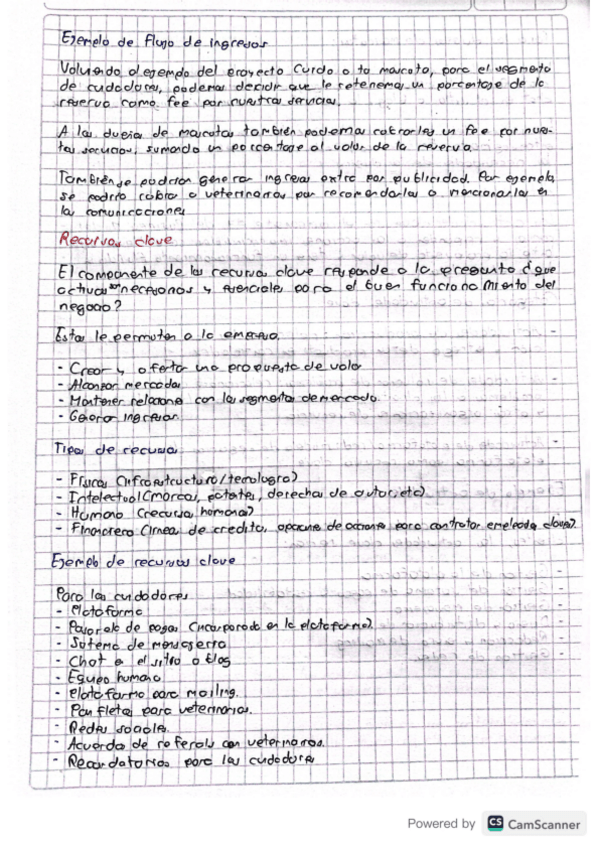 Ejemplo de flujo de ingresos
Volviendo al ejemplo del proyecto Cuido a tu mascota, para el segmento
de cuidadores, podemos decidir que le retenemos un porcentaje de la
reserva como fee por nuestros servicios.
A los dueños de mascotas también podemos cobrarles un fee por nues-
tros servicios, sumando un porcentaje al valor de la reserva.
También se podrían generar ingresos extra por publicidad. Por ejemplo,
se podría cobrar a veterinarios por recomendarlos o mencionarlos en
las comunicaciones
Recursos clave
El componente de los recursos clave responde a la pregunta ¿que
activos son necesarios y esenciales para el buen funcionamiento del
negocio?
Estos le permiten a la empresa.
- Crear y ofertar una propuesta de valor
- Alcanzar mercados
- Mantener relaciones con los segmentos de mercado.
- Generar ingresos.
Tipos de recursos
- Físicos (infraestructura/tecnología)
- Intelectual (marcas, patentes, derechos de autor, etc)
- Humano (recursos humanos)
- Financiero (línea de credito, opciones de acciones para contratar empleados claves)
Ejemplo de recursos clave
Para los cuidadores
- Plataforma
- Pasarela de pagos (incorporada en la plataforma)
- Sistema de mensajería
- Chat en el sitio o blog
- Equipo humano
- Plataforma para mailing.
- Panfletos para veterinarios.
- Redes sociales.
- Acuerdos de referals con veterinarios.
- Recordatorios para los cuidadores
Powered by CS CamScanner